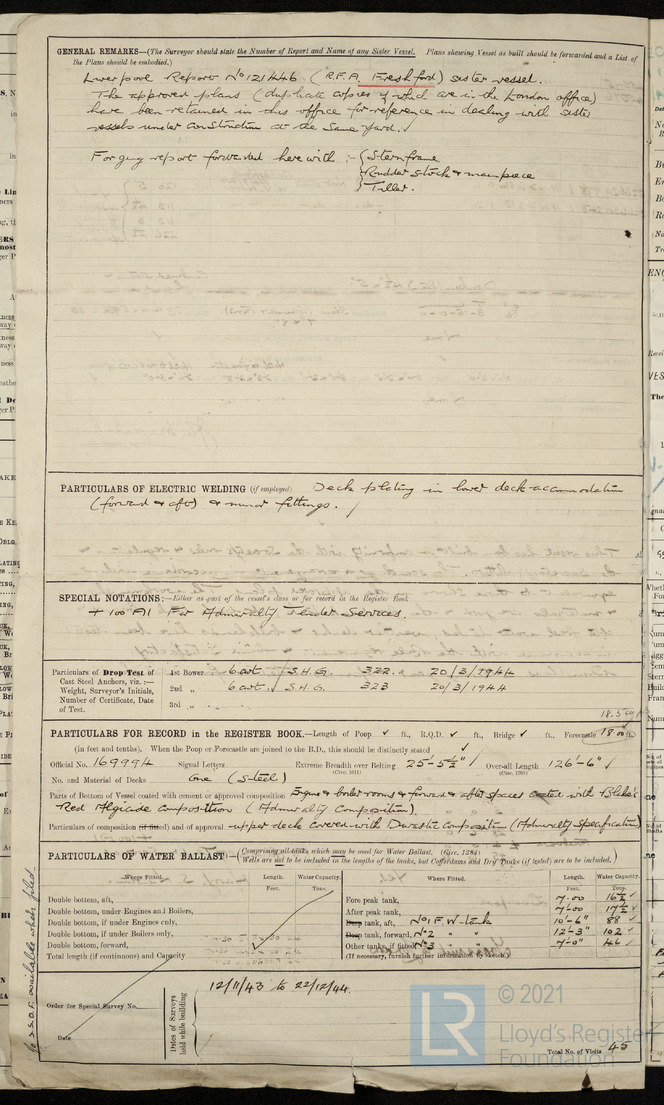 GENERAL REMARKS—(The Surveyor should state the Number of Report and Name of any Sister Vessel. Plans showing Vessel as built should be forwarded and a List of
the Plans should be embodied.)
Liverpool Report No 121446 (R.F.A. Freshford) sister vessel.
The approved plans (duplicate copies of which are in the London office)
have been retained in this office for reference in dealing with sister
vessels under construction at the same yard. ✓
Forging report forwarded herewith :- { Sternframe
Rudder stock & mainpiece
Tiller.
PARTICULARS OF ELECTRIC WELDING (if employed) Deck plating in lower deck accommodation
(forward & aft) & minor fittings. /
SPECIAL NOTATIONS:—Either as part of the vessel's class or for record in the Register Book
+ 100 A1 For Admiralty Tender Services.
Particulars of Drop Test of
Cast Steel Anchors, viz.:—
Weight, Surveyor's Initials,
Number of Certificate, Date
of Test.
1st Bower 6 cwt / S.H.G. 322. 20/3/1944
2nd " 6 cwt. / S.H.G. 323 20/3/1944
3rd " "
PARTICULARS FOR RECORD in the REGISTER BOOK.—Length of Poop ✓ ft., R.Q.D. ✓ ft., Bridge ✓ ft., Forecastle 18.00 ft.
(in feet and tenths). When the Poop or Forecastle are joined to the B.D., this should be distinctly stated ✓
Official No. 169994 Signal Letters Extreme Breadth over Belting 25'-5½" ✓ Over-all Length 126'-6" ✓
(Circ. 1611) (Circ. 1703)
No. and Material of Decks One (Steel)
Parts of Bottom of Vessel coated with cement or approved composition Engine & boiler rooms & forward & after spaces coated with Blake's
Red Algicide Composition (Admiralty Composition).
Particulars of composition (if fitted) and of approval upper deck covered with Durastic Composition (Admiralty Specification)
PARTICULARS OF WATER BALLAST:—(Comprising all tanks which may be used for Water Ballast. (Circ. 1284)
Wells are not to be included in the lengths of the tanks, but Cofferdams and Dry Tanks (if tested) are to be included.)
Where Fitted. Length. Water Capacity. Where Fitted. Length. Water Capacity.
Feet. Tons. Feet. Tons.
Double bottom, aft, Fore peak tank, 7.00 16½ ✓
Double bottom, under Engines and Boilers, After peak tank, 7.00 17½ ✓
Double bottom, if under Engines only, Deep tank, aft, No 1 F.W. tank 10'-6" 88 ✓
Double bottom, if under Boilers only, Deep tank, forward, No 2 " " 12'-3" 102 ✓
Double bottom, forward, Other tanks, if fitted, No 3 7'-0" 46 ✓
Total length (if continuous) and Capacity (If necessary, furnish further information by sketch.)
Order for Special Survey No.
Date
Dates of Surveys
held while building
12/11/43 to 22/12/44.
Total No. of Visits 45
© 2021
LR
Lloyd's Register
Foundation